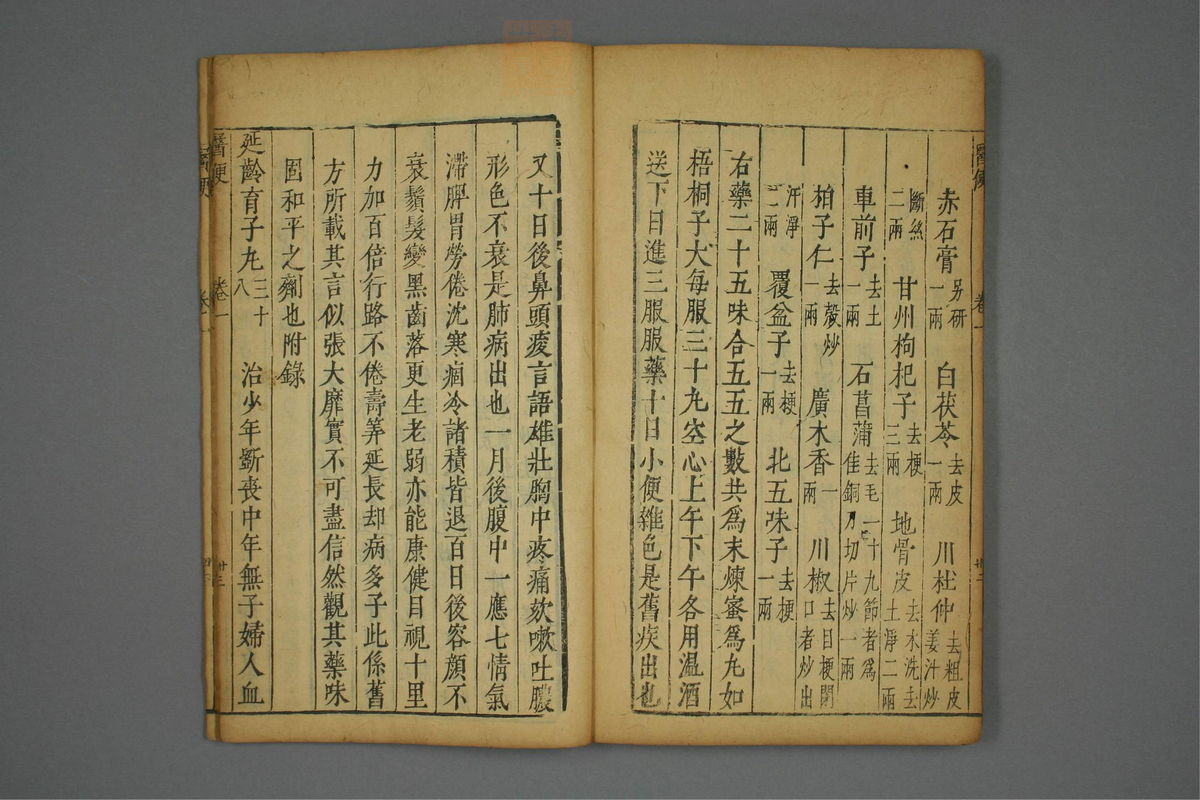 醫便 卷一 卅二
赤石膏另研一兩 白茯苓去皮一兩 川杜仲去粗皮姜汁炒
斷絲二兩 甘州枸杞子去梗三兩 地骨皮去木洗去土淨二兩
車前子去土一兩 石菖蒲去毛一寸九節者為佳銅刀切片炒一兩
栢子仁去殼炒一兩 廣木香一兩 川椒去目梗閉口者炒出
汗淨二兩 覆盆子去梗一兩 北五味子去梗一兩
右藥二十五味合五五之數共爲末煉蜜爲丸如
梧桐子大每服三十丸空心上午下午各用溫酒
送下日進三服服藥十日小便雜色是舊疾出也
又十日後鼻頭痠言語雄壯胸中疼痛欬嗽吐膿
形色不衰是肺病出也一月後腹中一應七情氣
滯脾胃勞倦沈寒痼冷諸積皆退百日後容顏不
衰鬚髮變黑齒落更生老弱亦能康健目視十里
力加百倍行路不倦壽筭延長却病多子此係舊
方所載其言似張大靡實不可盡信然觀其藥味
固和平之劑也附錄
延齡育子丸三十八 治少年斵喪中年無子婦人血
醫便 卷一 卅三
醫便 卷一